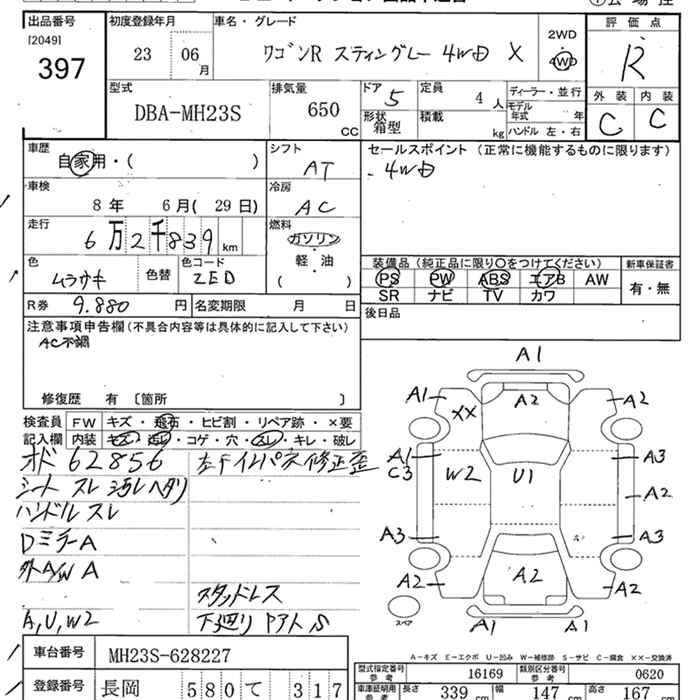 出品番号 初度登録年月 車名・グレード 評価点
[2049]
397 23 06月 ワゴンR スティングレー 4WD X 2WD 4WD R
型式 排気量 ドア 5 定員 4人 ディーラー・並行 外装 内装
DBA-MH23S 650 CC 形状 箱型 積載 kg モデル年式 年 C C
ハンドル 左・右
車歴 自家用・( ) シフト AT セールスポイント (正常に機能するものに限ります)
4WD
車検 8年 6月(29日) 冷房 AC
走行 6万2千839km 燃料 ガソリン・軽・油 ( )
装備品 (純正品に限り○をつけてください) 新車保証書
色 ムラサキ 色替 色コード ZED PS PW ABS エアB AW 有・無
SR ナビ TV カワ
R券 9.880円 名変期限 月 日 後日品
注意事項申告欄 (不具合内容等は具体的に記入して下さい)
AC不調
修復歴 有 〔箇所 〕
検査員記入欄 FW キズ・飛石・ヒビ割・リペア跡・×要
内装 キズ・汚レ・コゲ・穴・スレ・キレ・破レ
オド 62856 左Fインパネ修正歪
シート スレ 汚レ ヘタリ
ハンドル スレ
Dミラー A
外A/W A
スタッドレス
A,U,W2 下廻り Pアト,S
A1
A1 XX A2 A2
A1 C3 W2 U1 A3
A2
A3 A3
A2 A2 A2
スペア A1 A1
A-キズ E-エクボ U-凹み W-補修跡 S-サビ C-腐食 ××-交換済
車台番号 MH23S-628227 型式指定番号 参考 16169 類別区分番号 参考 0620
登録番号 長岡 580 て 317 車庫証明用 参考 長さ 339 cm 幅 147 cm 高さ 167 cm